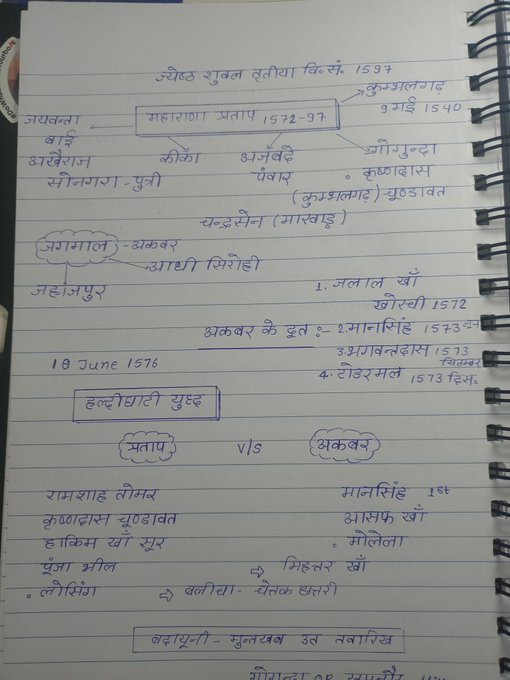 ज्येष्ठ शुक्ल तृतीया वि॰ सं॰ 1597
कुम्भलगढ़
9 मई 1540
जयवन्ता बाई
महाराणा प्रताप 1572-97
अखैराज सोनगरा - पुत्री
कीका
अजबदे पंवार
गोगुन्दा
कृष्णदास चूण्डावत
(कुम्भलगढ़)
चन्द्रसेन (मारवाड़)
जगमाल - अकबर
आधी सिरोही
जहाजपुर
अकबर के दूत :-
1. जलाल खाँ
खोरची 1572
2. मानसिंह 1573
3. भगवन्तदास 1573
सितम्बर
4. टोडरमल 1573 दिस॰
18 June 1576
हल्दीघाटी युध्द
प्रताप V/S अकबर
रामशाह तोमर मानसिंह 1st
कृष्णदास चूण्डावत आसफ खाँ
हाकिम खाँ सूर • मोलेला
पूंजा भील ⇨ मिहत्तर खाँ
• लोसिंग ⇨ बलीचा - चेतक छतरी
बदायूनी - मुन्तखब उत तवारिख